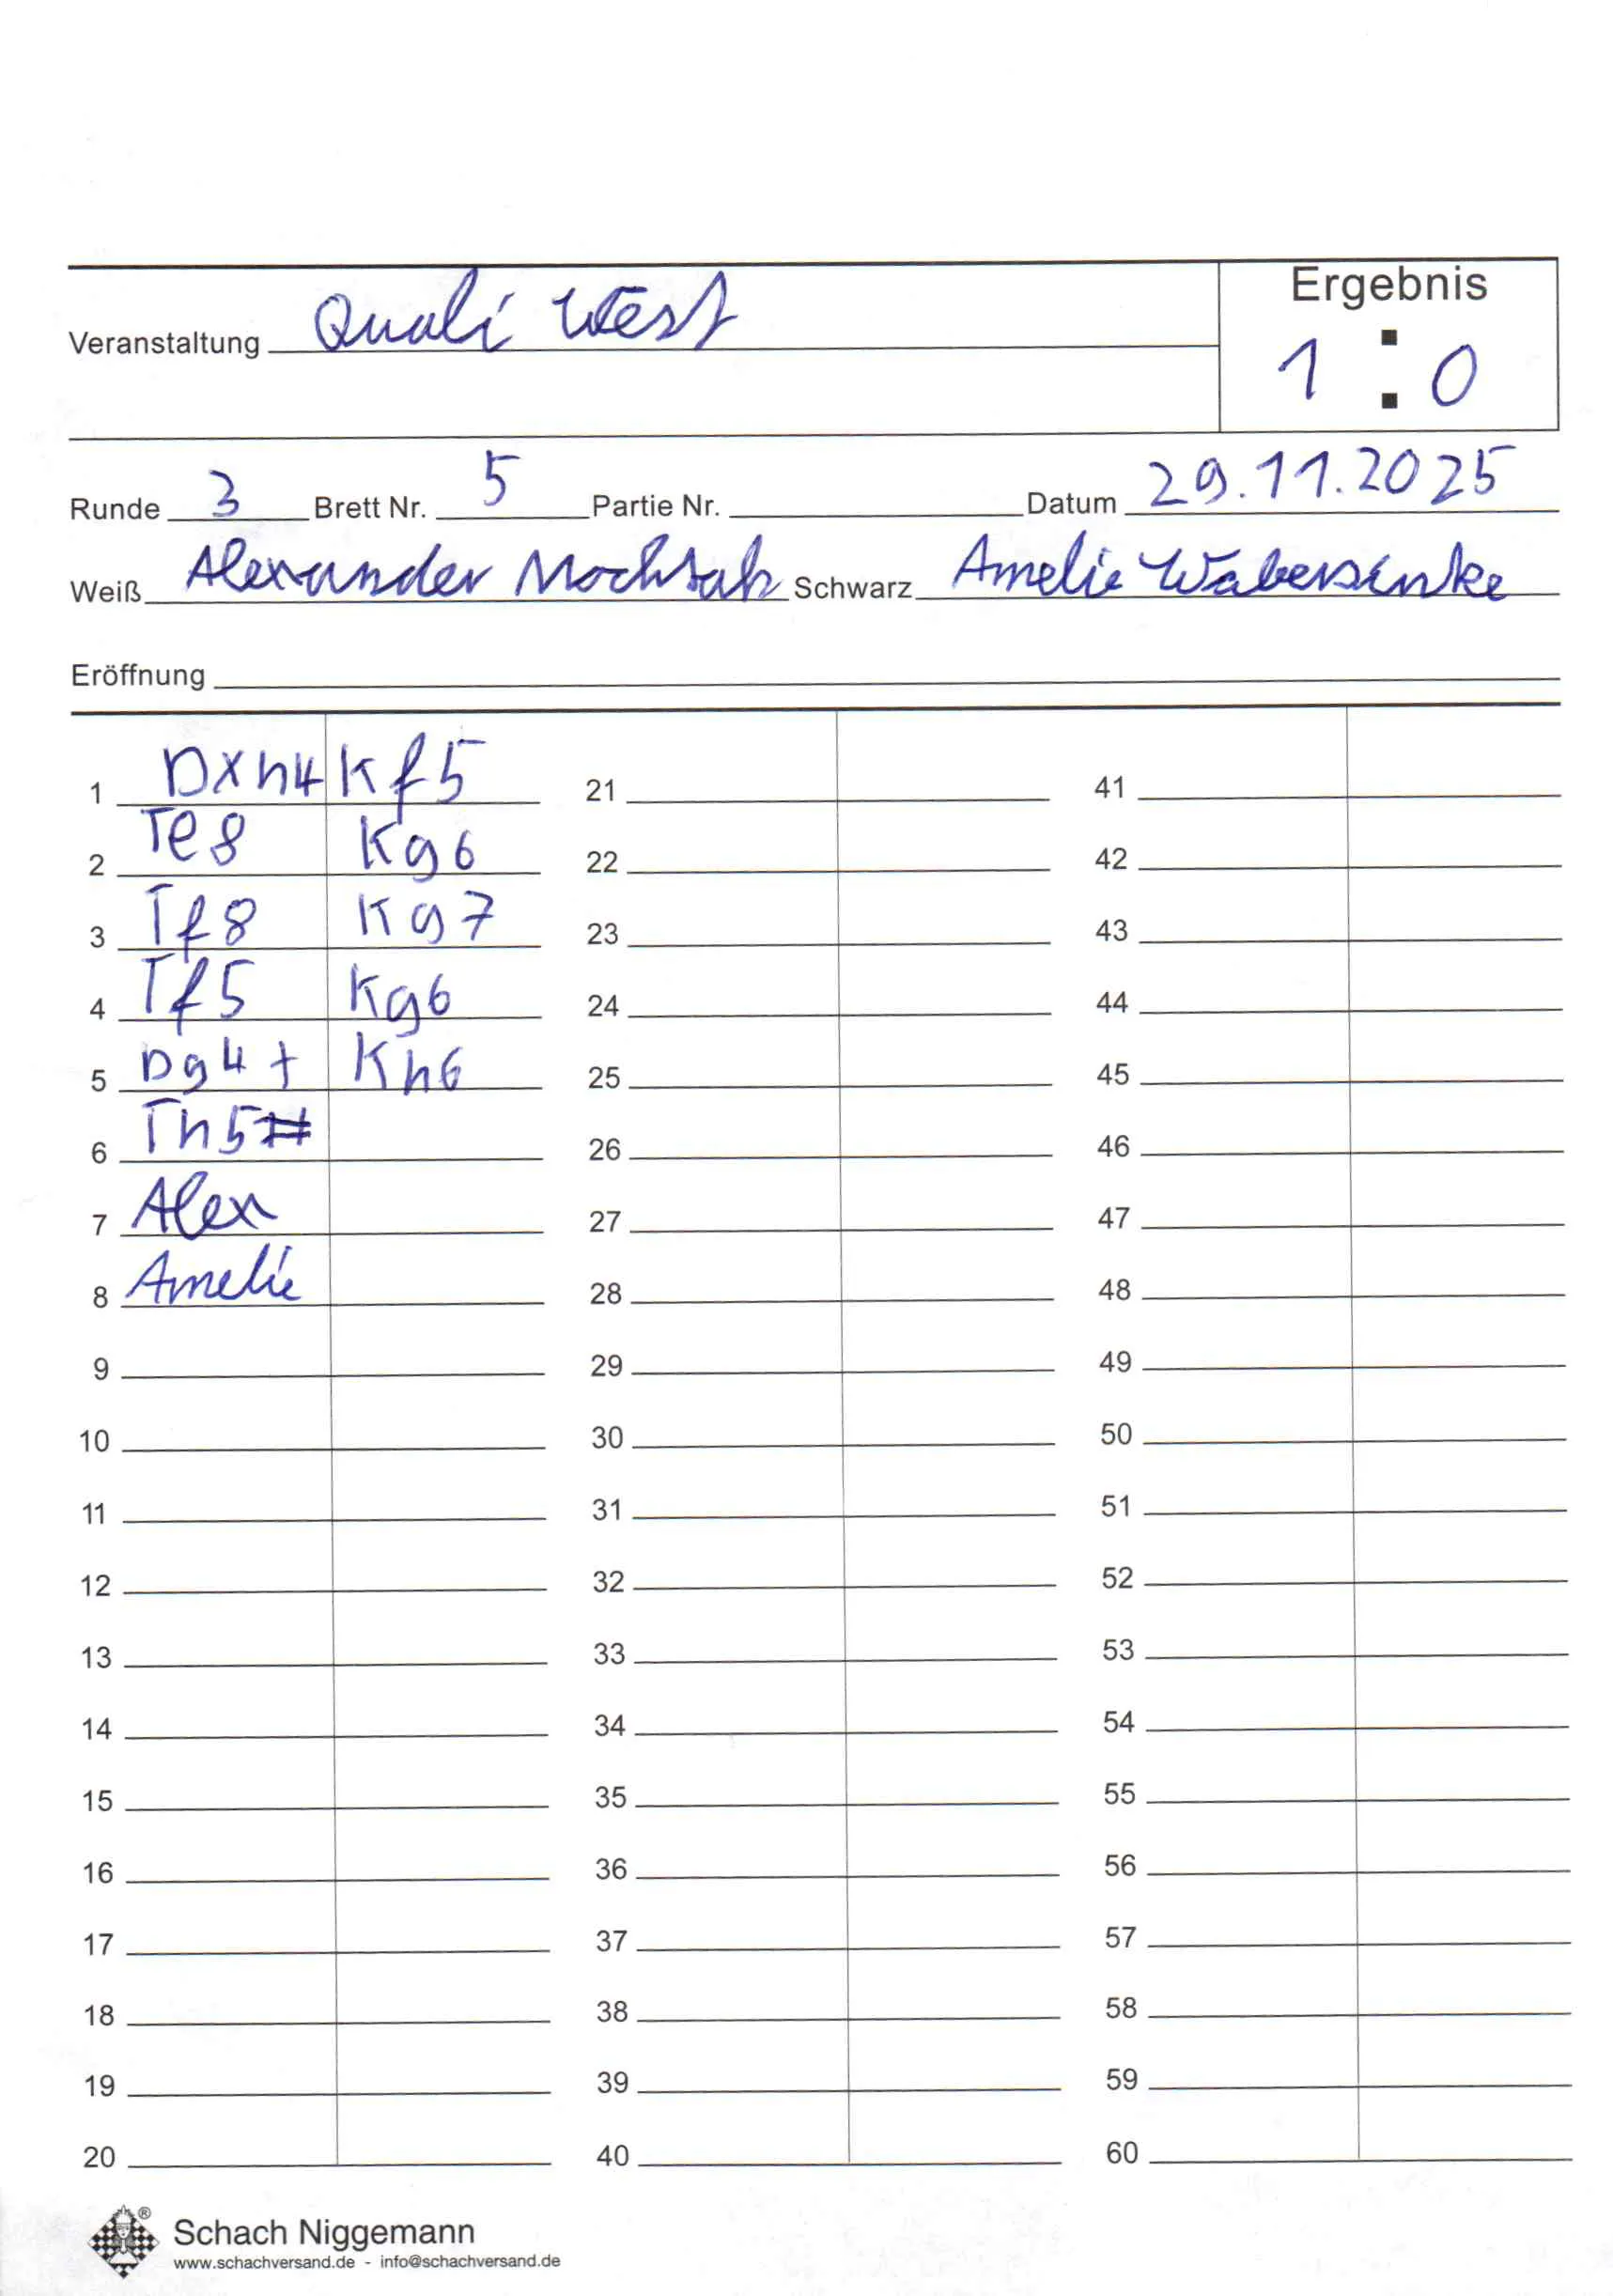 Ergebnis
Veranstaltung Quali West
1 : 0
Runde 3 Brett Nr. 5 Partie Nr. Datum 29.11.2025
Weiß Alexander Schwarz Amelie
Eröffnung
1 Dxh4 Kf5 21 41
2 Te8 Kg6 22 42
3 Tf8 Kg7 23 43
4 Tf5 Kg6 24 44
5 Dg4+ Kh6 25 45
6 Th5# 26 46
7 Alex 27 47
8 Amelie 28 48
9 29 49
10 30 50
11 31 51
12 32 52
13 33 53
14 34 54
15 35 55
16 36 56
17 37 57
18 38 58
19 39 59
20 40 60
® Schach Niggemann
www.schachversand.de - info@schachversand.de